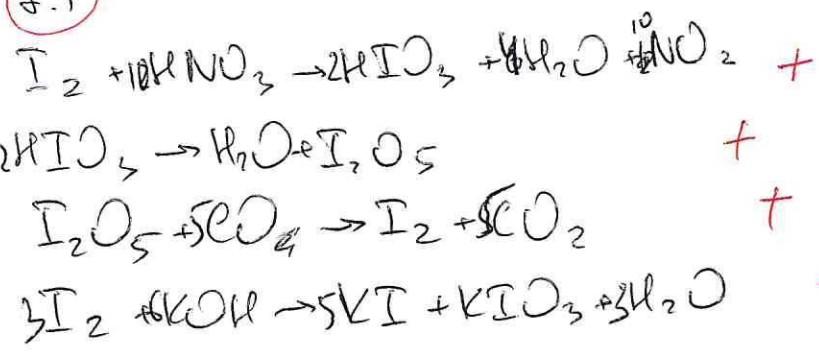 I₂ + 10HNO₃ → 2HIO₃ + 4H₂O + 10NO₂ +
2HIO₃ → H₂O + I₂O₅ +
I₂O₅ + 5CO → I₂ + 5CO₂ +
3I₂ + 6KOH → 5KI + KIO₃ + 3H₂O